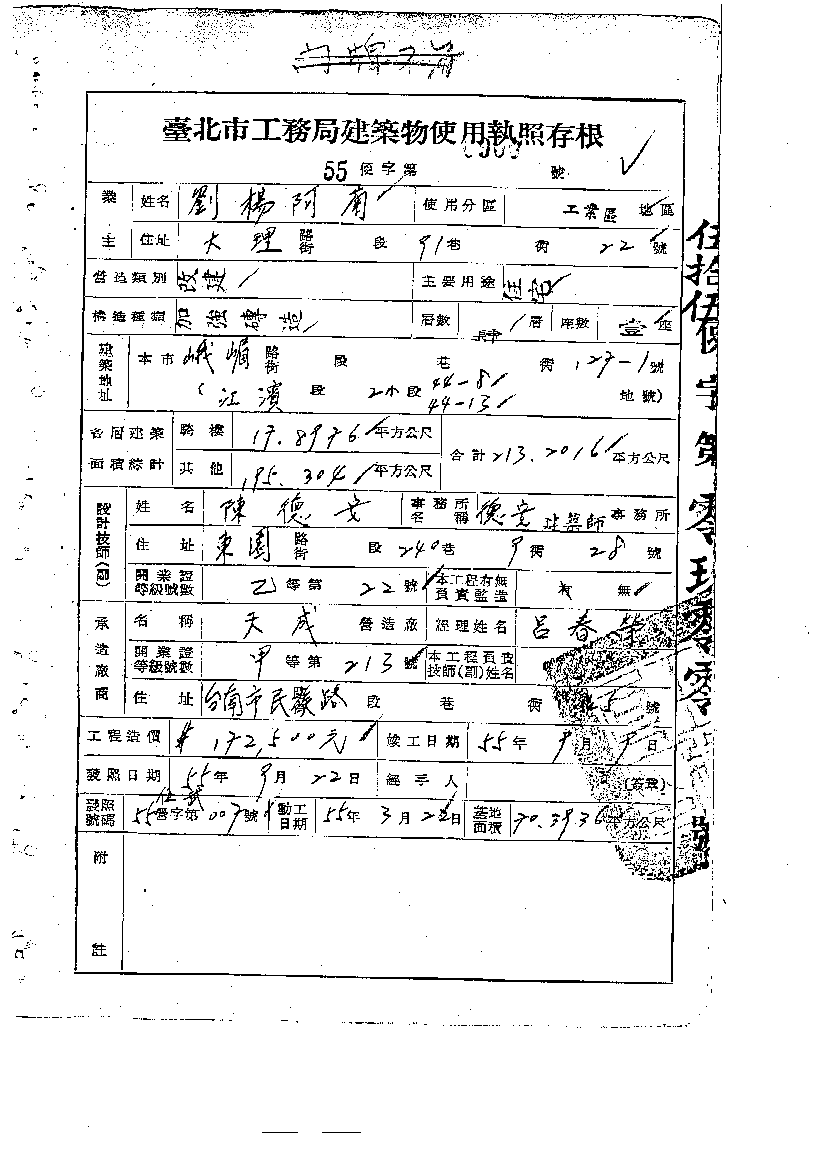 臺北市工務局建築物使用執照存根
55 使字第 號
業主 姓名 劉楊阿 使用分區 工業區 地區
住址 大理 路街 段 91巷 衖 22號
營造類別 改建 主要用途 住宅
構造種類 加強磚造 層數 層 座數 壹座
建築地址 本市 峨嵋 路街 段 巷 衖 127-1號
(江濱 段 2小段 44-8 44-13 地號)
各層建築面積綜計 騎樓 17.8976 平方公尺 合計 213.2016 平方公尺
其他 195.304 平方公尺
設計技師(副) 姓名 陳德 事務所名稱 德 建築師 事務所
住址 東園 路街 段 240巷 9衖 28號
開業證等級號數 乙等第 22號 本工程有無負責監造 有 無
承造廠商 名稱 天成 營造廠 經理姓名 呂春榮
開業證等級號數 甲等第 213號 本工程負責技師(副)姓名
住址 台南市民 路 段 巷 衖 號
工程造價 $ 172,500元 竣工日期 55年 9月 9日
發照日期 55年 9月 22日 經手人 (簽章)
發照號碼 55營字第 號 動工日期 55年 3月 日 基地面積 平方公尺
附註
伍拾伍使字第零玖零零 號